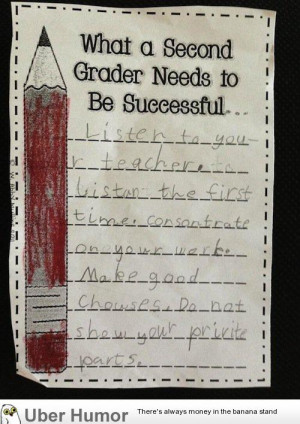 What a Second
Grader Needs to
Be Successful...
Listen to you
r teacher.
Listan the first
time. consantrate
on your werk.
Make good
Chouses. Do not
show your privite
parts.
Uber Humor
There's always money in the banana stand